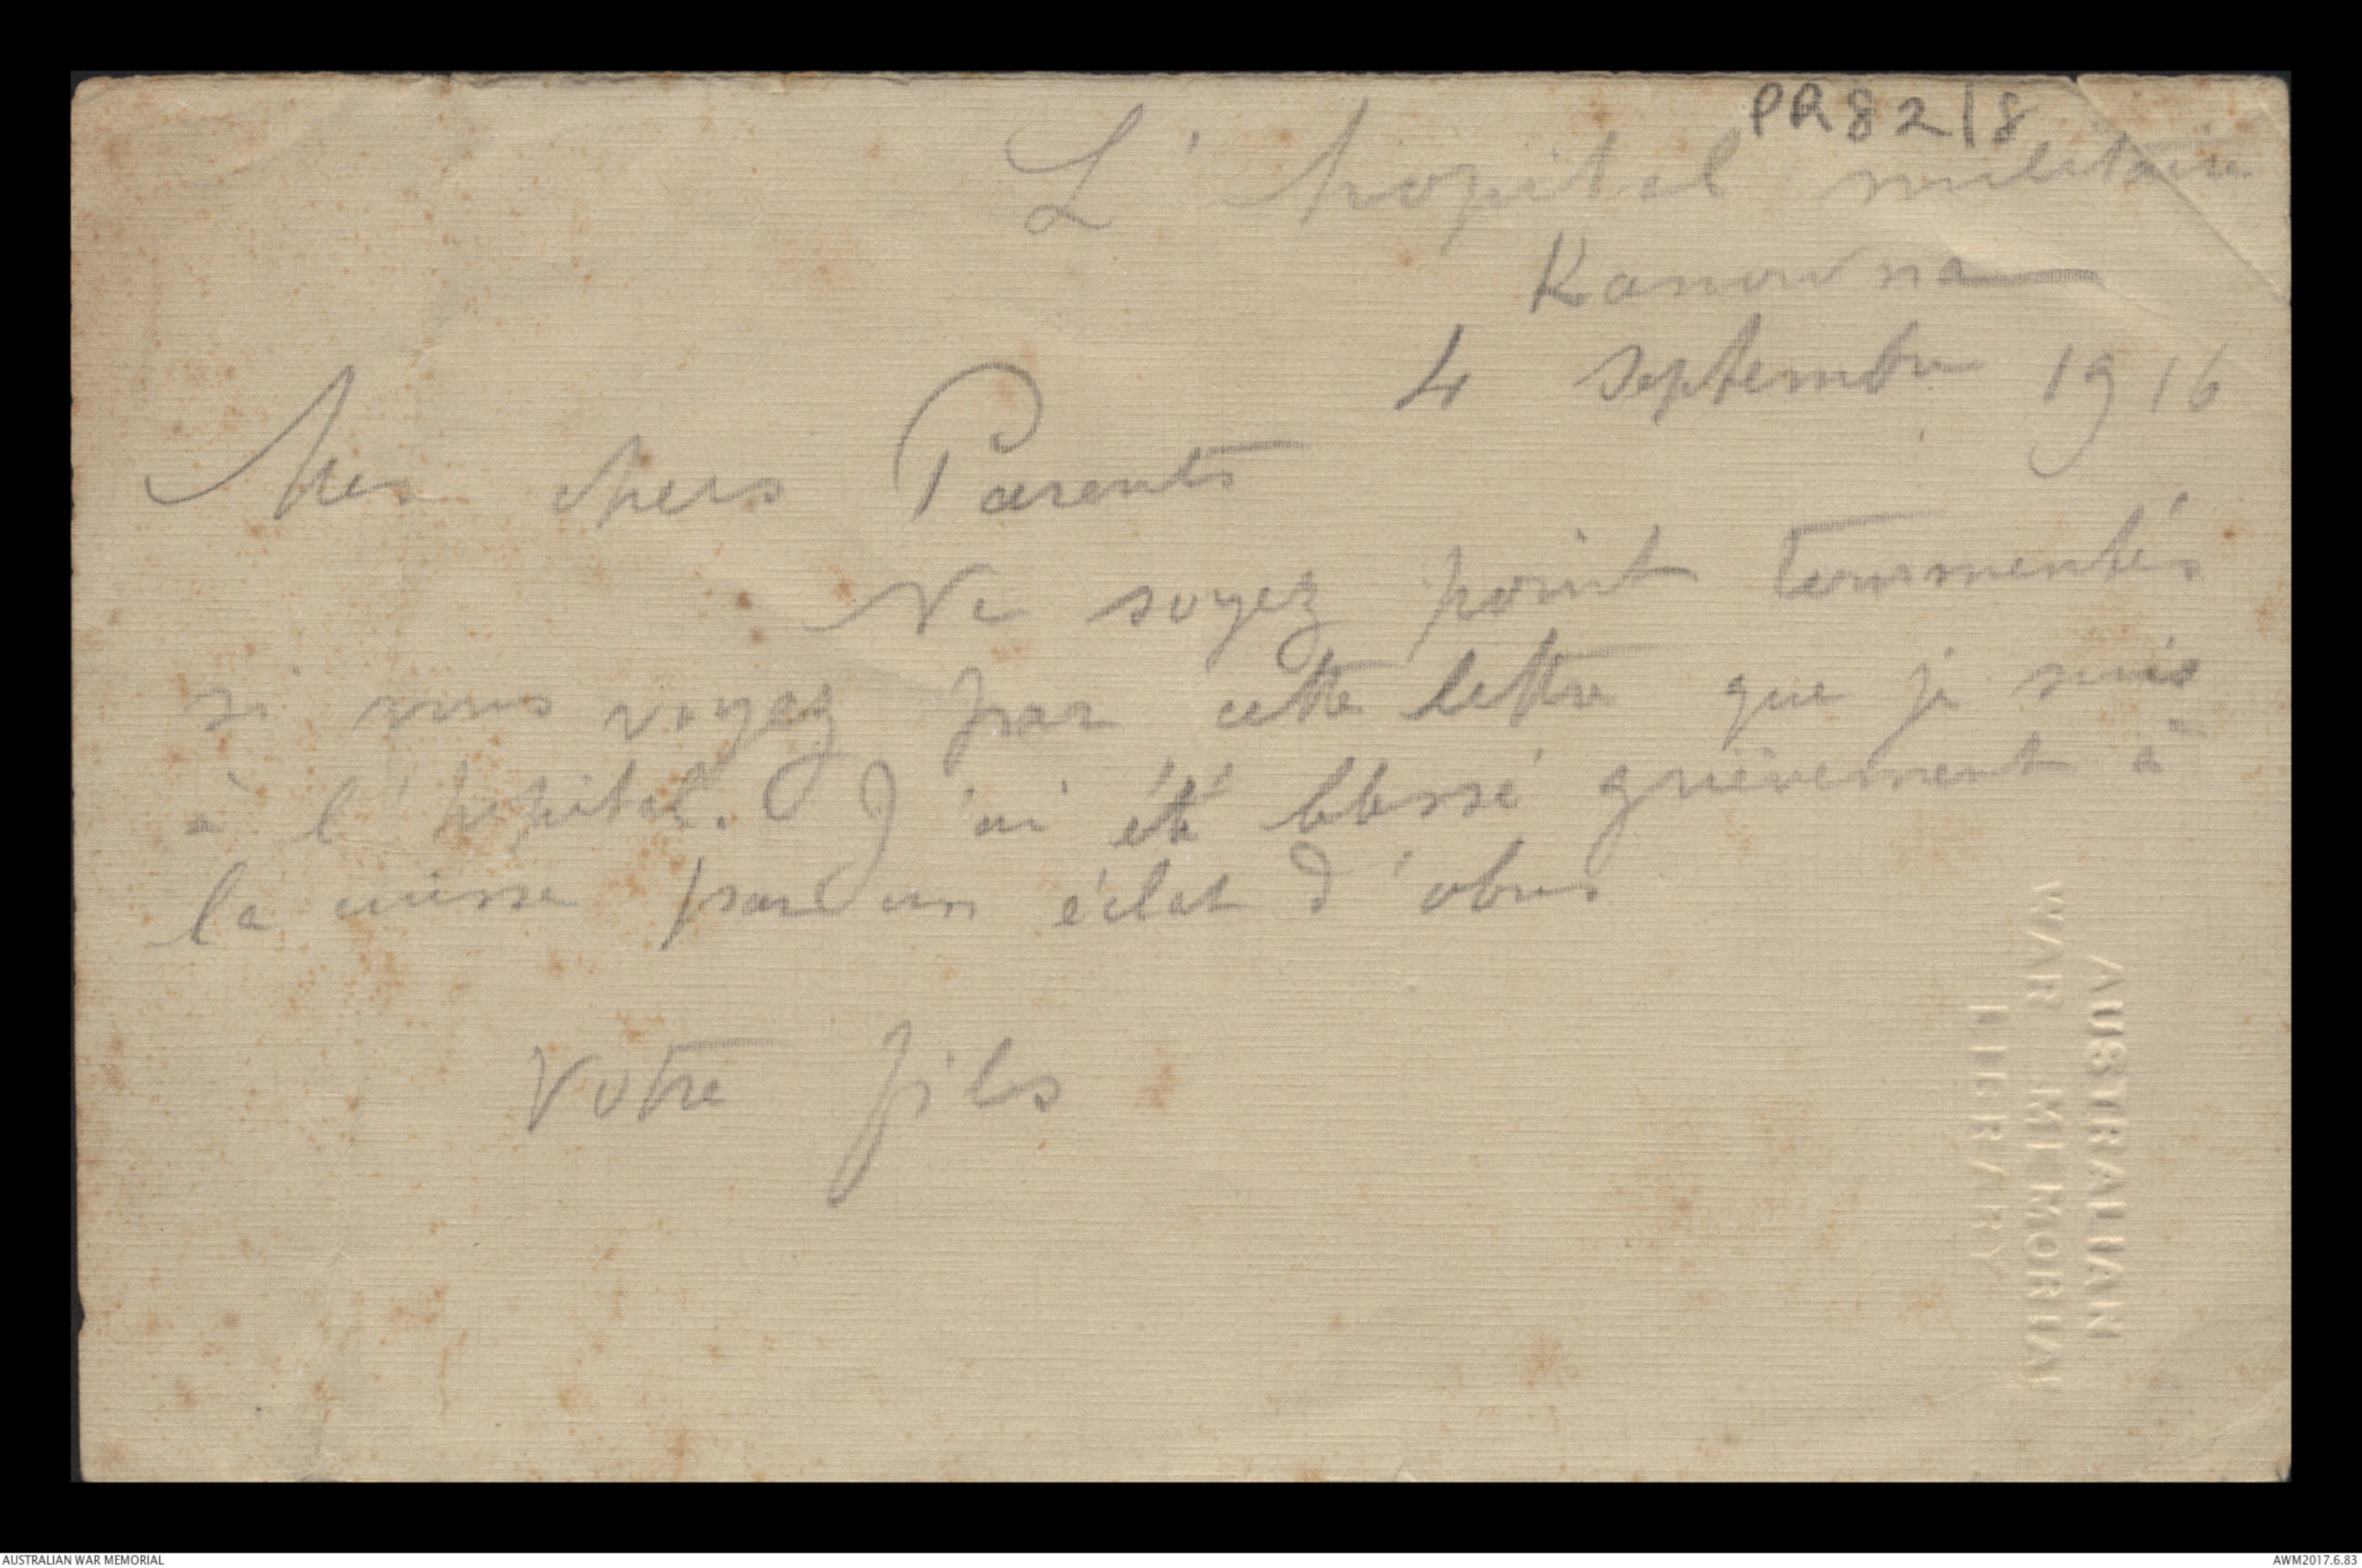 PR82/8
L'hopital militaire
Kanowna
4 septembre 1916
Mes chers Parents
Ne soyez point tourmentés
si vous voyez par cette lettre que je suis
à l'hopital. J'ai été blessé grièvement à
la cuisse par un éclat d'obus
Votre fils
AUSTRALIAN
WAR MEMORIAL
LIBRARY
AUSTRALIAN WAR MEMORIAL
AWM2017.6.83